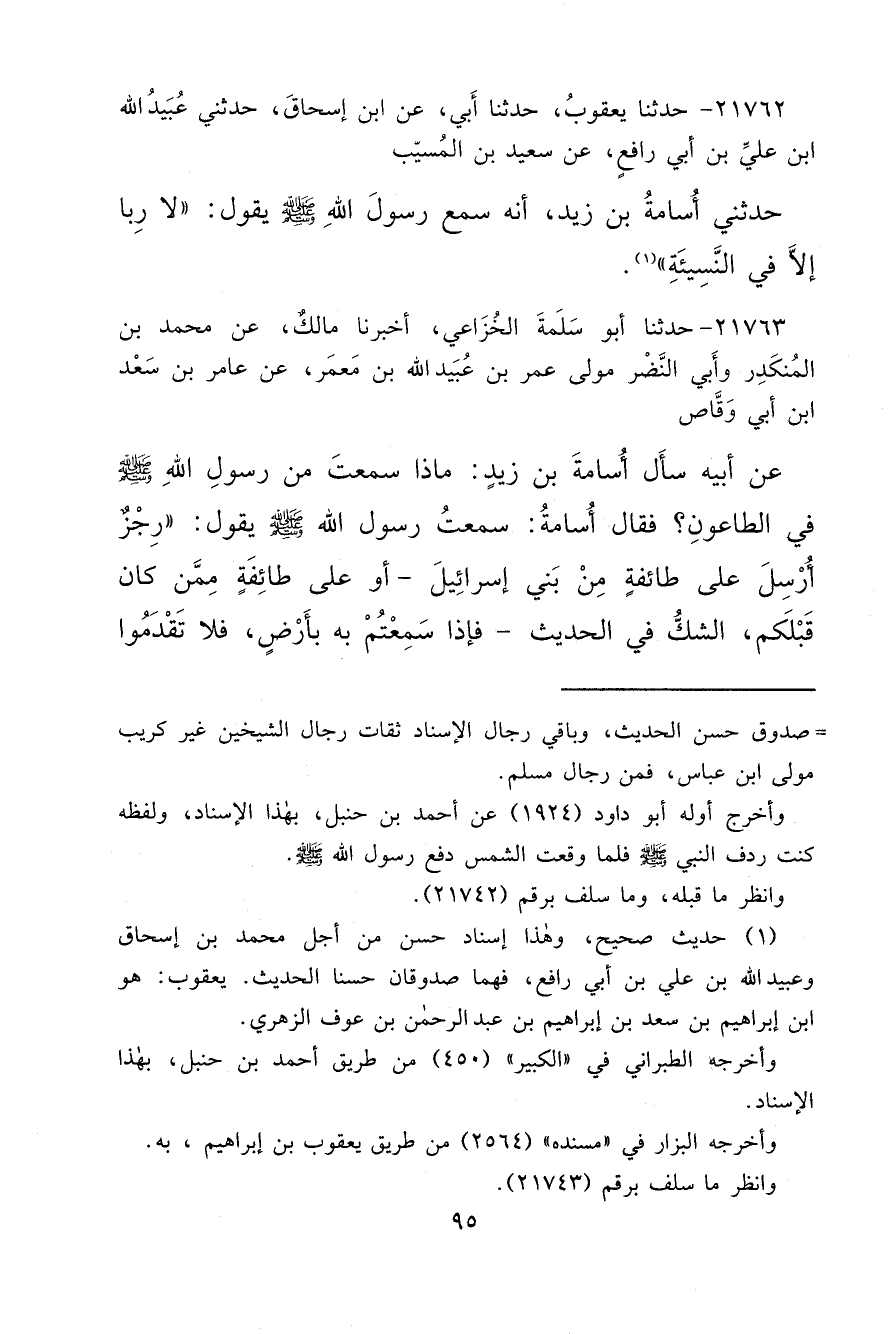 ٢١٧٦٢- حدثنا يعقوبُ، حدثنا أَبي، عن ابن إسحاقَ، حدثني عُبَيدُ الله
ابن عليِّ بن أبي رافعٍ، عن سعيد بن المُسيّب
حدثني أُسامةُ بن زيد، أنه سمع رسولَ اللهِ ﷺ يقول: «لا رِبا
إلاَّ في النَّسِيئَةِ»(١).
٢١٧٦٣- حدثنا أبو سَلَمةَ الخُزَاعي، أخبرنا مالكٌ، عن محمد بن
المُنكَدِر وأَبي النَّضْر مولى عمر بن عُبَيد الله بن مَعمَر، عن عامر بن سَعْد
ابن أبي وَقَّاص
عن أبيه سأَل أُسامةَ بن زيدٍ: ماذا سمعتَ من رسولِ اللهِ ﷺ
في الطاعونِ؟ فقال أُسامةُ: سمعتُ رسول الله ﷺ يقول: «رِجْزٌ
أُرْسِلَ على طائفةٍ مِنْ بَني إسرائيلَ - أو على طائِفَةٍ مِمَّن كان
قَبْلَكم، الشكُّ في الحديث - فإذا سَمِعْتُمْ به بأَرْضٍ، فلا تَقْدَمُوا
= صدوق حسن الحديث، وباقي رجال الإسناد ثقات رجال الشيخين غير كريب
مولى ابن عباس، فمن رجال مسلم.
وأخرج أوله أبو داود (١٩٢٤) عن أحمد بن حنبل، بهٰذا الإسناد، ولفظه
كنت ردف النبي ﷺ فلما وقعت الشمس دفع رسول الله ﷺ.
وانظر ما قبله، وما سلف برقم (٢١٧٤٢).
(١) حديث صحيح، وهٰذا إسناد حسن من أجل محمد بن إسحاق
وعبيد الله بن علي بن أبي رافع، فهما صدوقان حسنا الحديث. يعقوب: هو
ابن إبراهيم بن سعد بن إبراهيم بن عبد الرحمٰن بن عوف الزهري.
وأخرجه الطبراني في «الكبير» (٤٥٠) من طريق أحمد بن حنبل، بهٰذا
الإسناد.
وأخرجه البزار في «مسنده» (٢٥٦٤) من طريق يعقوب بن إبراهيم ، به.
وانظر ما سلف برقم (٢١٧٤٣).
٩٥